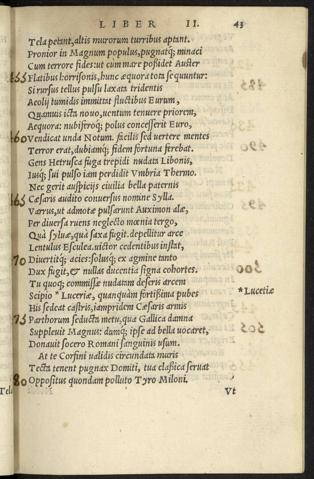 LIBER II. 43
Tela petant, altis murorum turribus aptant.
Pronior in Magnum populus, pugnatq; minaci
Cum terrore fides: ut cum mare possidet Auster
455 Flatibus horrisonis, hunc æquora tota sequuntur:
Si rursus tellus pulsu laxata tridentis
Aeolij tumidis immittat fluctibus Eurum,
Quamuis icta nouo, uentum tenuere priorem,
Aequora: nubiferoq; polus concesserit Euro,
460 Vendicat unda Notum. facilis sed uertere mentes
Terror erat, dubiamq; fidem fortuna ferebat.
Gens Hetrusca fuga trepidi nudata Libonis,
Iusq; sui pulso iam perdidit Vmbria Thermo.
Nec gerit auspicijs ciuilia bella paternis
465 Cæsaris audito conuersus nomine Sylla.
Varrus, ut admotæ pulsarunt Auximon alæ,
Per diuersa ruens neglecto mœnia tergo,
Quà syluæ, quà saxa fugit. depellitur arce
Lentulus Esculea. uictor cedentibus instat,
70 Diuertitq; acies: solusq; ex agmine tanto
Dux fugit, & nullas ducentia signa cohortes.
Tu quoq; commissæ nudatam deseris arcem
Scipio * Luceriæ, quanquàm fortißima pubes *Lucetiæ
His sedeat castris, iampridem Cæsaris armis
75 Parthorum seducta metu, qua Gallica damna
Suppleuit Magnus: dumq; ipse ad bella uocaret,
Donauit socero Romani sanguinis usum.
At te Corfini ualidis circundata muris
Tecta tenent pugnax Domiti, tua classica seruat
80 Oppositus quondam polluto Tyro Miloni.
Vt